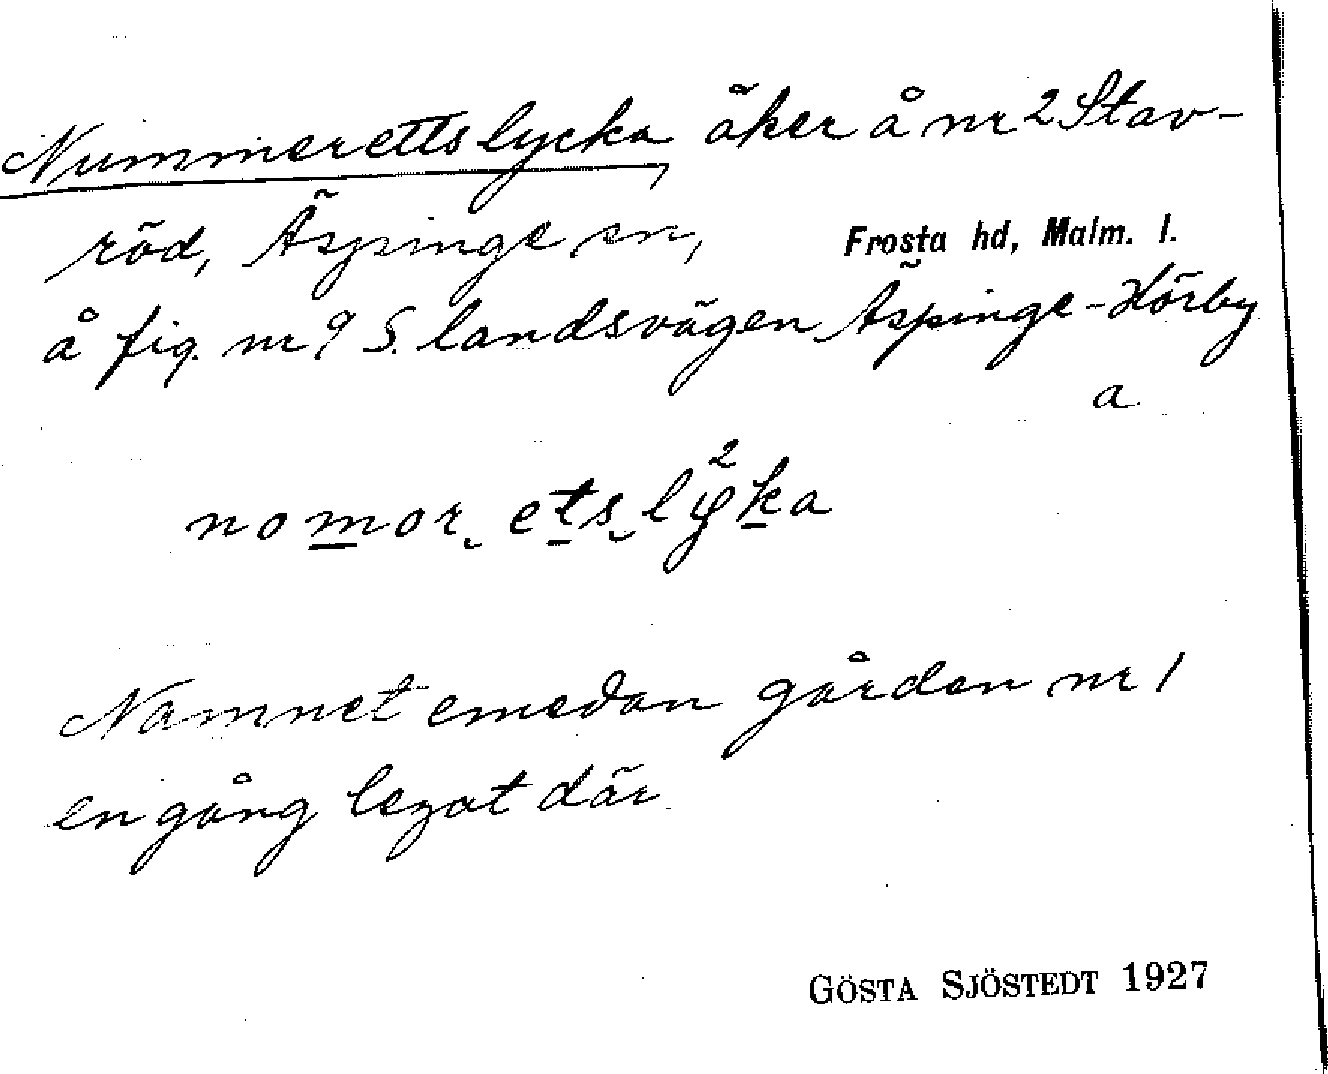 Nummerettslycka, åker å nr 2 Stav-
röd, Äspinge sn, Frosta hd, Malm. l.
å fig. nr 9 S. landsvägen Äspinge-Hörby
a
nomor etslyka
2
Namnet emedan gården nr 1
en gång legat där
GÖSTA SJÖSTEDT 1927